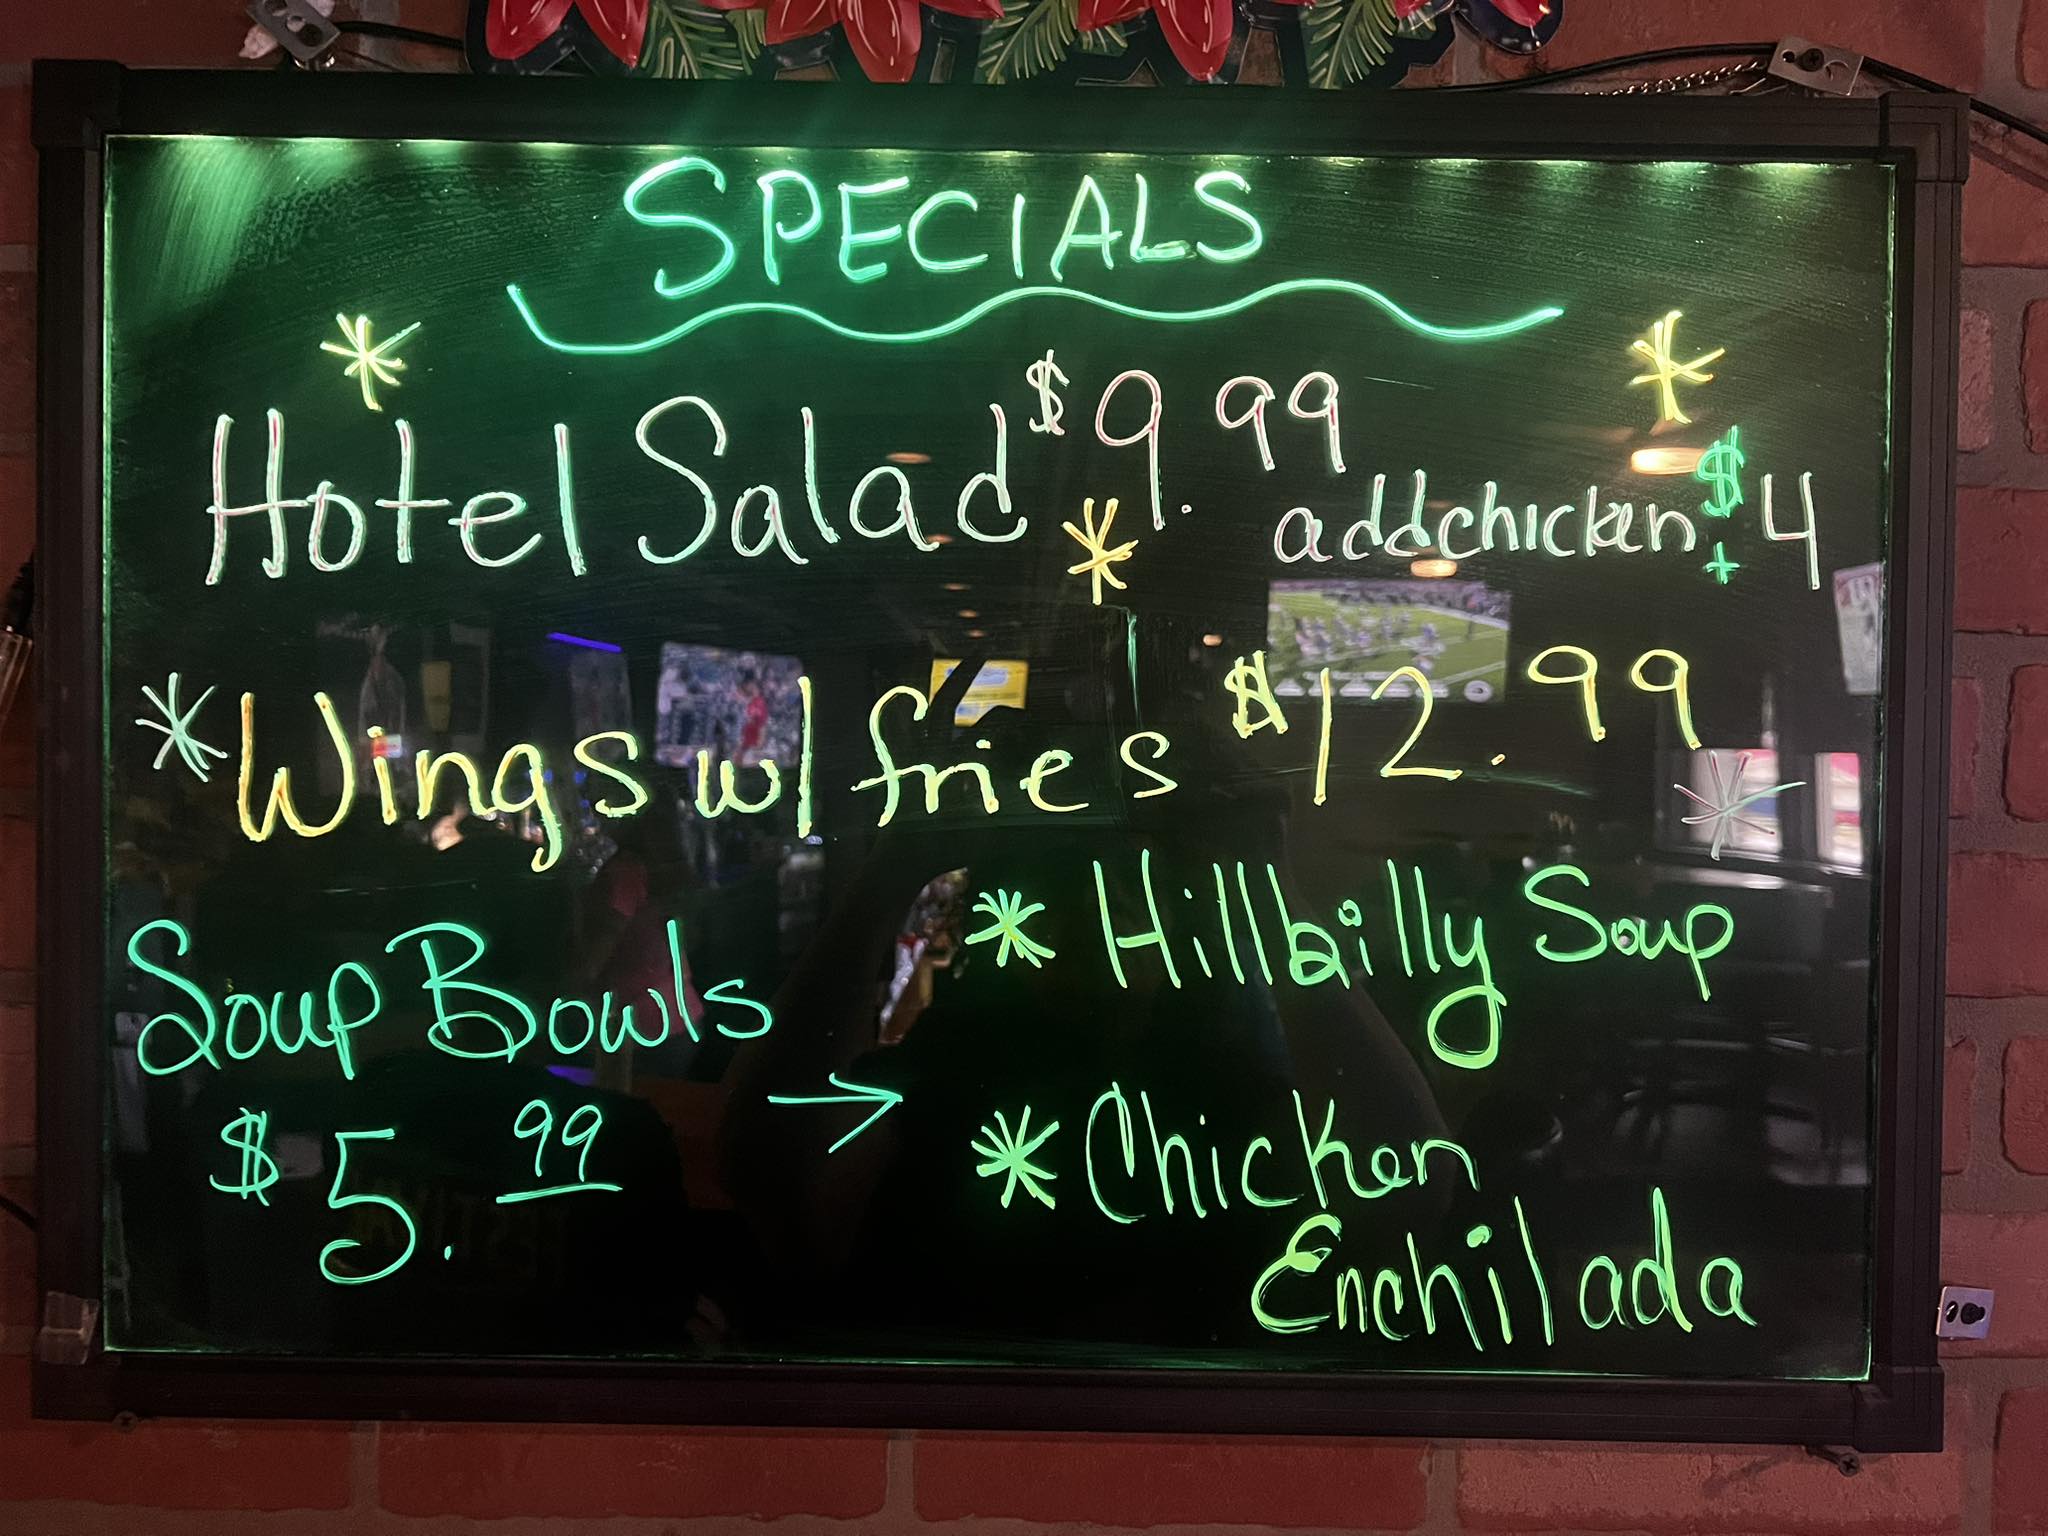 SPECIALS
* Hotel Salad $9.99 *
* addchicken $+4
* Wings w/ fries $12.99 *
Soup Bowls
$5.99 →
* Hillbilly Soup
* Chicken
Enchilada